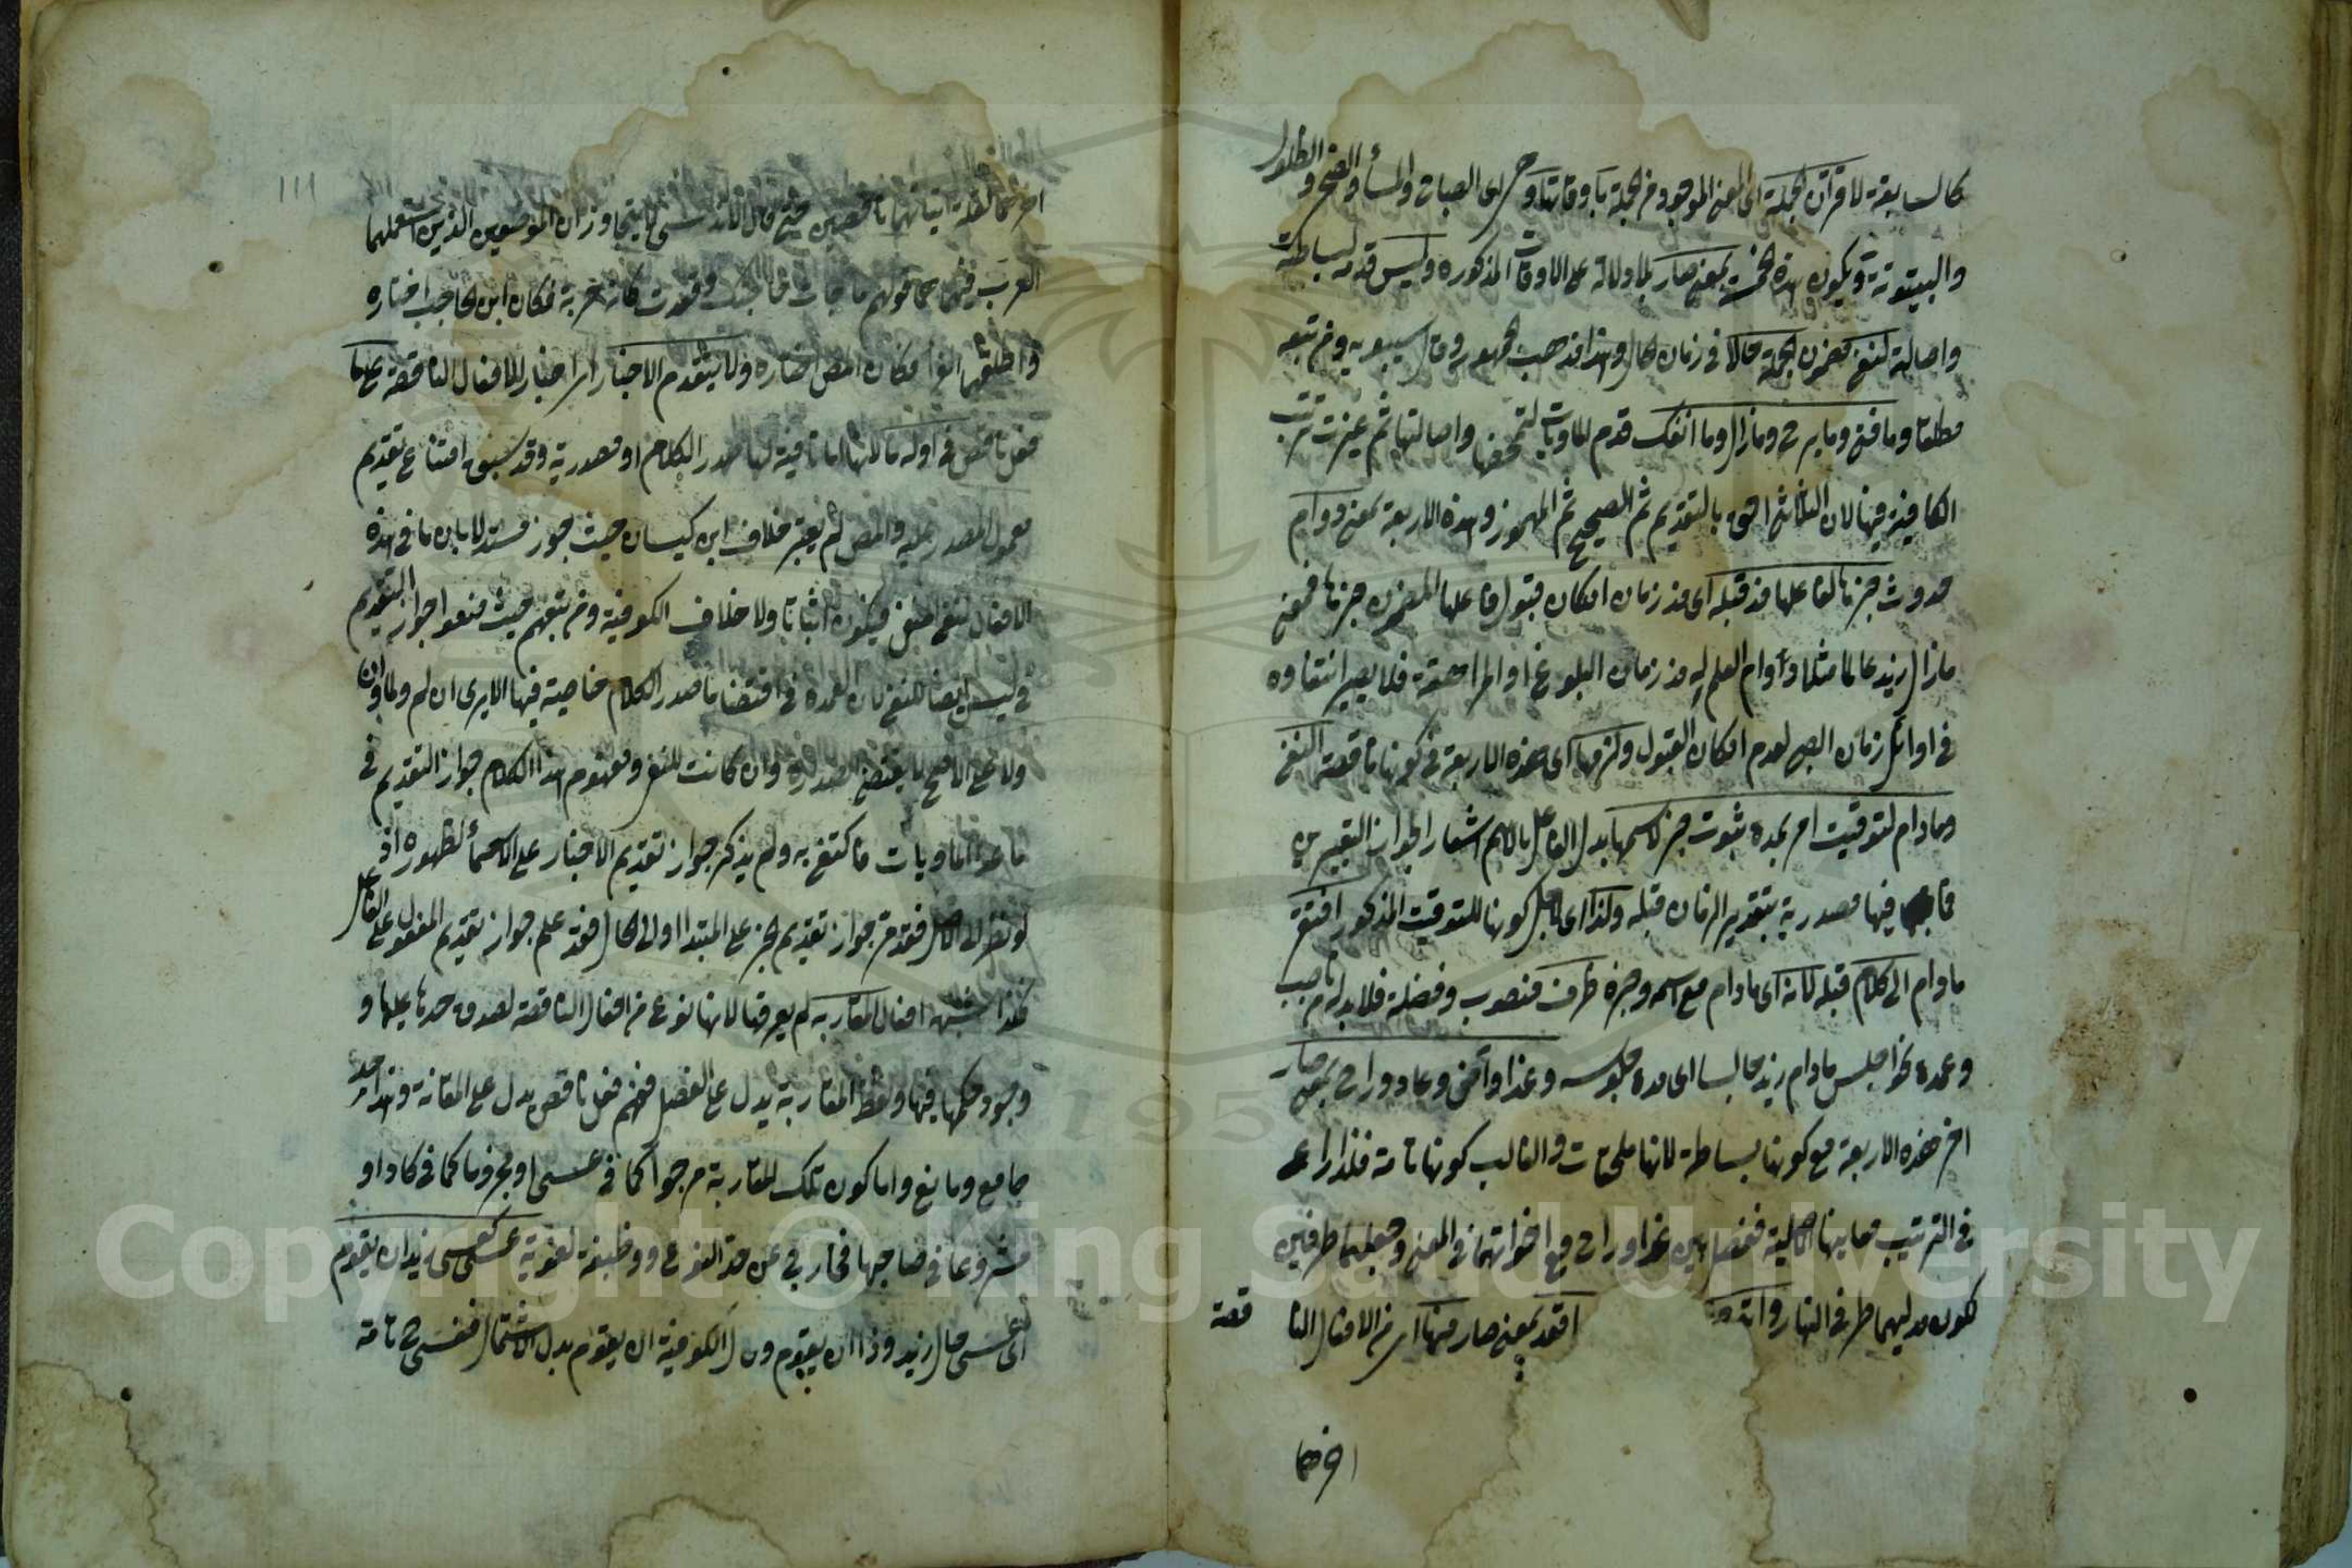 كالسابقة لاقتران الجملة اى المعنى الموجود فى الجملة باوقاتها وهى اى الصباح والمسأ والضحى والظلول
والبيتوتة ويكون هذه الخمسة بمعنى صار بلا دلالة على الاوقات المذكورة وليس قدم لبساطته
واصالته لنفى مضمون الجملة حالا فى زمان الحال وهذا مذهب الجمهور وقال سيبويه ومن تبعه
مطلقا وما فتئ وما برح وما زال وما انفك قدم للماويات لتمحضها واصالتها ثم غيرت ترتيب
الكافية فيها لان الثلاثى احق بالتقديم ثم الصحيح ثم المهموز وهذه الاربعة بمعنى دوام
حدوث خبرها لفاعلها مذ قبله اى مذ زمان امكان قبول فاعلها المضمون خبرها فمعنى
ما زال زيد عالما مثلا دوام العلم له مذ زمان البلوغ او المراهقة فلا يضر انتفاؤه
فى اوائل زمان الصبى لعدم امكان القبول ولزمها اى هذه الاربعة فى كونها ناقصة النفى
وما دام لتوقيت امر بمدة ثبوت خبر لاسمها بدل الفاعل بالاسم اشعارا لجواز التعبير من
فما فيها مصدرية بتقدير الزمان قبله ولذا اى لاجل كونها للتوقيت المذكور افتقر
ما دام الى كلام قبله لانه اى ما دام مع اسمه وخبره ظرف منصوب وفضلة فلا بد له من ناصب
وعمدة نحو اجلس ما دام زيد جالسا اى مدة جلوسه وغدا واضحى وعاد وراح بمعنى صار
اخر هذه الاربعة مع كونها بسائطة لانها ملحقات والغالب كونها تامة فلذا راعى
فى الترتيب فيما بينها الاصلية ففصل بين غدا وراح مع اخواتهما فى المعنى وجعلهما طرفين
لكون مدلوليهما طرفى النهار وانه اقعد بمعنى صار منها اى من الافعال الناقصة
اخرهما
١١١
اخرهما لقلة اتيانهما ناقصين حتى قال الاندلسى لا يتجاوزان الموضعين الذين استعملهما
العرب فيهما قولهم ما جات حاجتك وقعدت كانها حربة فكان ابن الحاجب اختاره
واطلقهما الفرأ فكان المص اختاره ولا يتقدم الاخبار اى اخبار الافعال الناقصة على ما
فعل ناقص فى اوله ما لانها اما نافية لها صدر الكلام او مصدرية وقد سبق امتناع تقديم
معمول المصدر عليه والمص لم يعتبر خلاف ابن كيسان حيث جوز مستدلا بان ما فى هذه
الافعال لنفى النفى فيكون اثباتا ولا خلاف الكوفية ومن تبعهم حيث منعوا جواز التقديم
فى ليس ايضا للنفى فان العمدة فى اقتضاء ما صدر الكلام خاصية فيها الا يرى ان لم ولما ولن
ولا على الاصح لا يقتضى الصدر وان كانت للنفى ومفهوم هذا الكلام جواز التقديم فى
ما عدا الماويات فاكتفى به ولم يذكر جواز تقديم الاخبار على الاسمأ لظهوره اذ
لو نظر الى الاصل فقد مر جواز تقديم الخبر على المبتدا او الى الحال فقد علم جواز تقديم المفعول على الفاعل
فكذا شبهه افعال المقاربة لم يعرفها لانها نوع من افعال الناقصة لصدق حدها عليها و
وجود حكمها فيها ولفظ المقاربة يدل على الفصل فهم فعل ناقص يدل على المقاربة وهذا حد
جامع ومانع واما كون تلك المقاربة مرجوا كما فى عسى او مجزوما كما فى كاد او
مشروعا فى صاحبها فخارج عن حد النوع ووظيفة لغوية عسى كعسى زيد ان يقوم
اى عسى حال زيد وذا ان يقوم وقال الكوفية ان يقوم بدل الاشتمال فعسى ح تامة